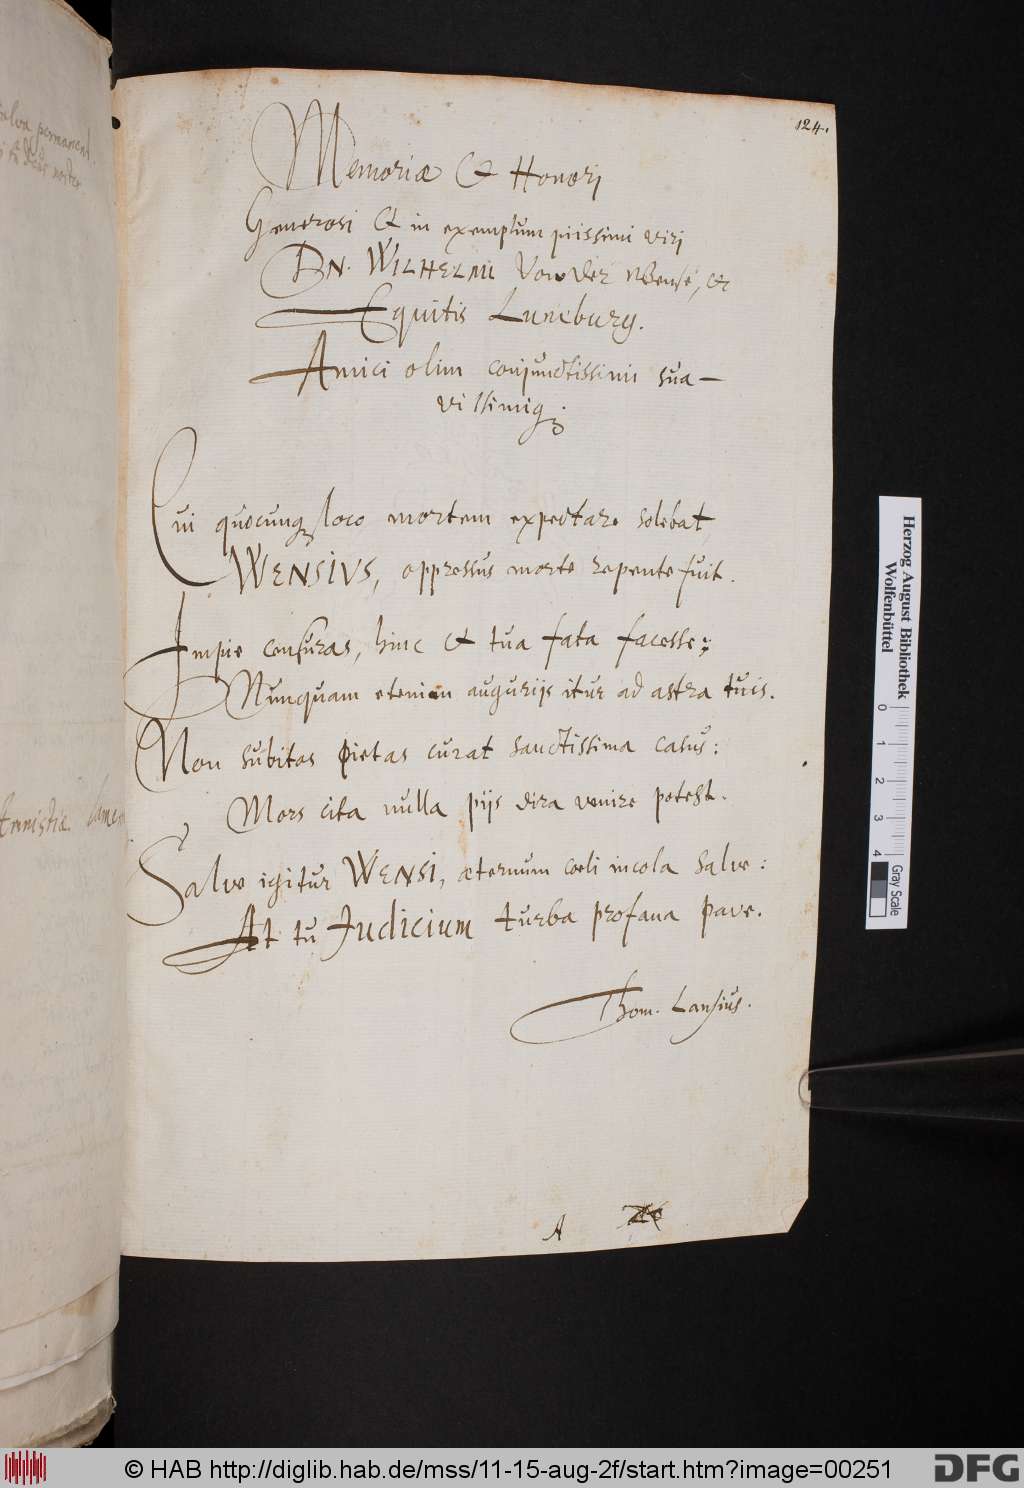 124.
Memoriæ & Honori
Generosi & in exemplum piissimi viri
DN. WILHELMI Von der Wense, &c
Equitis Luneburg.
Amici olim conjunctissimi sua-
vissimiq;
Cui quocunq, loco mortem expectare solebat
WENSIVS, oppressus morte repente fuit.
Impie censuras, hinc & tua fata facesse;
Nunquam etenim augurijs itur ad astra tuis.
Non subitos pietas curat sanctissima casus:
Mors cita nulla pijs dira venire potest.
Salve igitur WENSI, æternum cœli incola salve:
At tu Judicium turba profana pave.
Thom. Lansius.
A
salva permaneat
Herzog August Bibliothek
Wolfenbüttel
0 1 2 3 4
Gray Scale
© HAB http://diglib.hab.de/mss/11-15-aug-2f/start.htm?image=00251
DFG